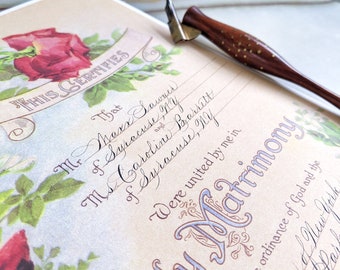 THIS CERTIFIES
That
Mr Marx Sawyer
of Syracuse, NY
and
Ms Caroline Bassett
of Syracuse, NY
Were united by me in
y Matrimony
ordinance of God and the
New York